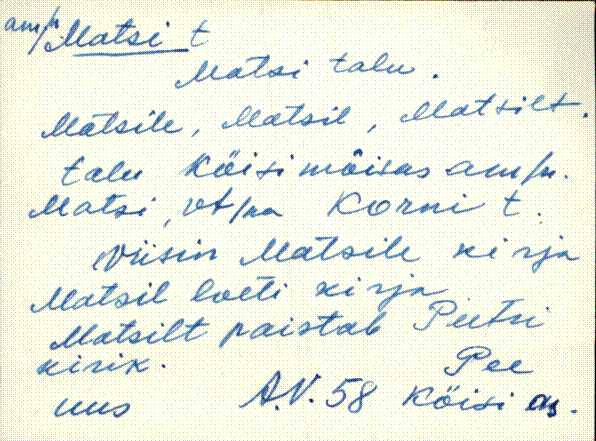 am/n Matsi t
Matsi talu.
Matsile, Matsil, Matsilt.
talu Köisi mõisas am/n.
Matsi, vt/ka Korni t.
Viisin Matsile kirja
Matsil loeti kirja
Matsilt paistab Peetri
kirik. Pee
uus A.V. 58 Köisi as.